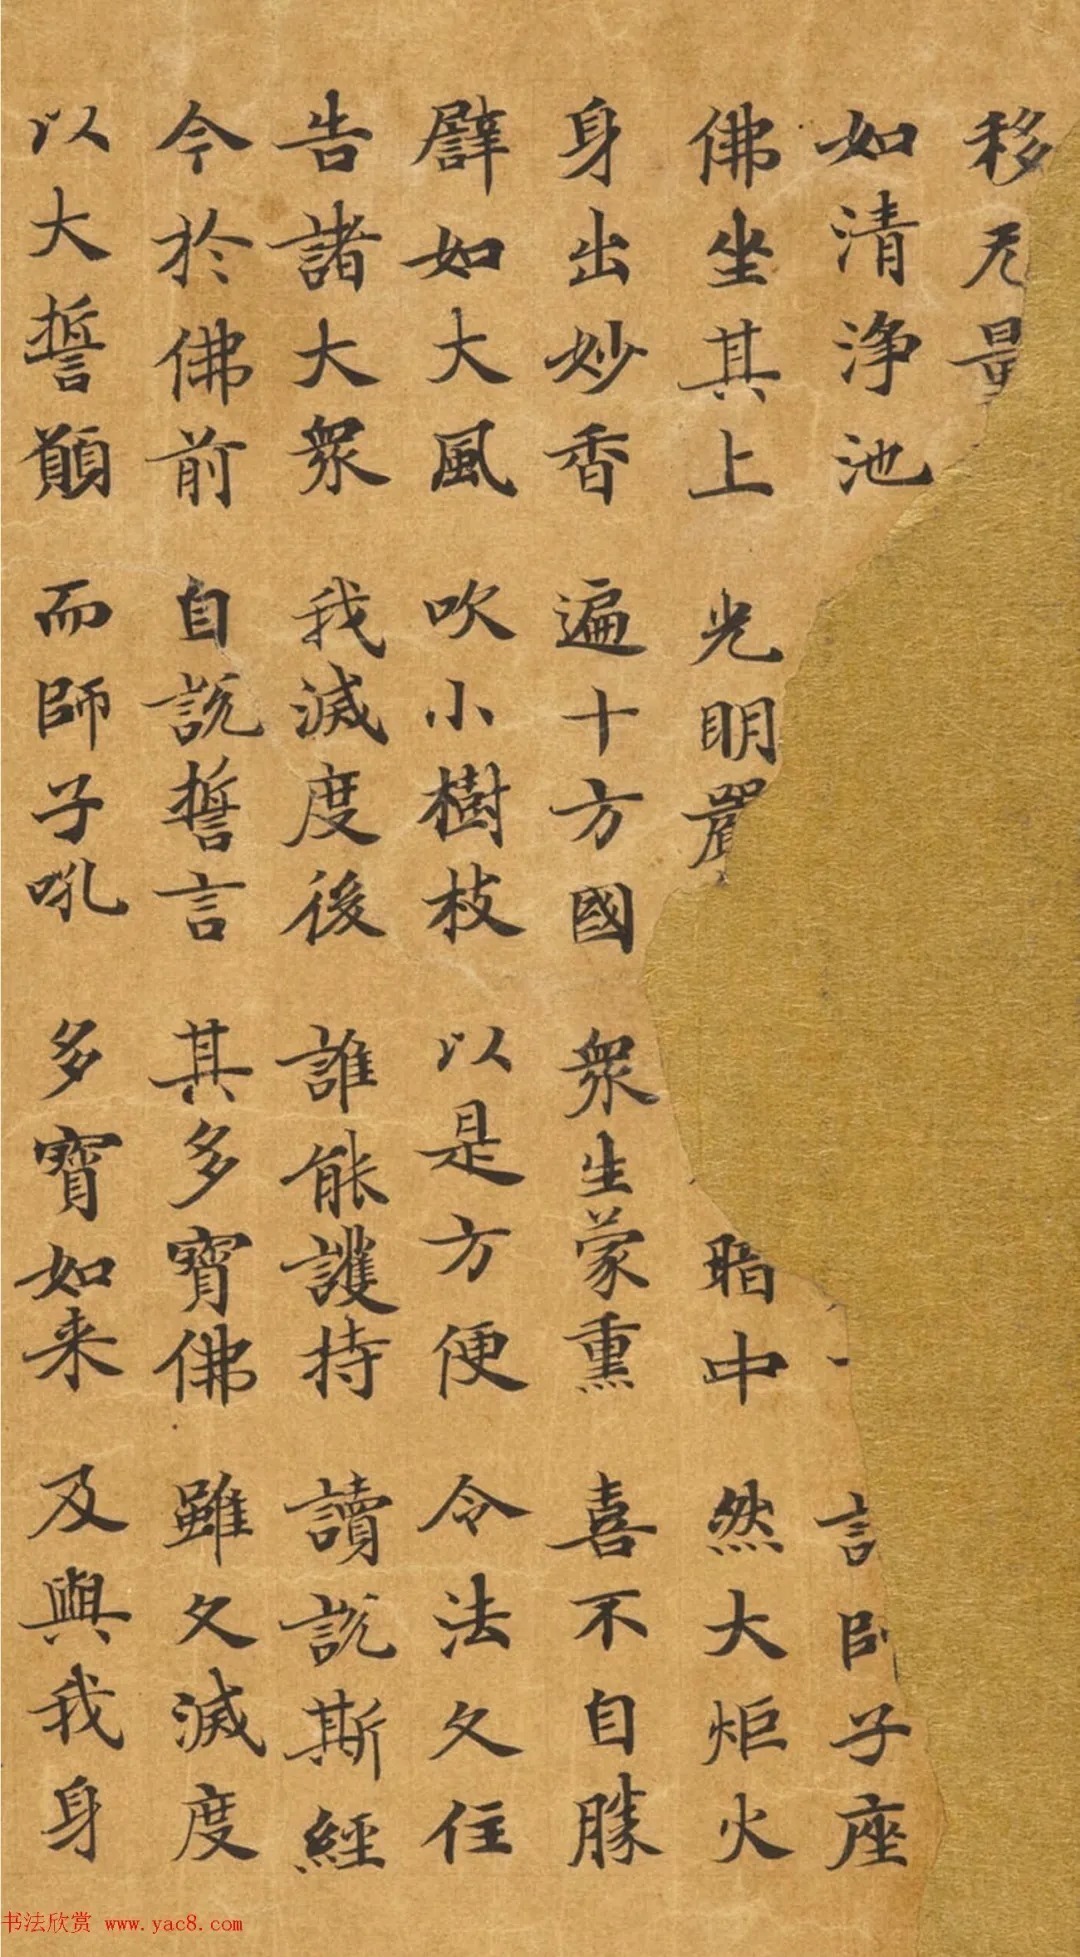 移无量
如清淨池 言師子座
佛坐其上 光明嚴 暗中 然大炬火
身出妙香 遍十方國 衆生蒙熏 喜不自勝
譬如大風 吹小樹枝 以是方便 令法久住
告諸大衆 我滅度後 誰能護持 讀說斯經
今於佛前 自說誓言 其多寶佛 雖久滅度
以大誓願 而師子吼 多寶如来 及與我身
书法欣赏 www.yac8.com